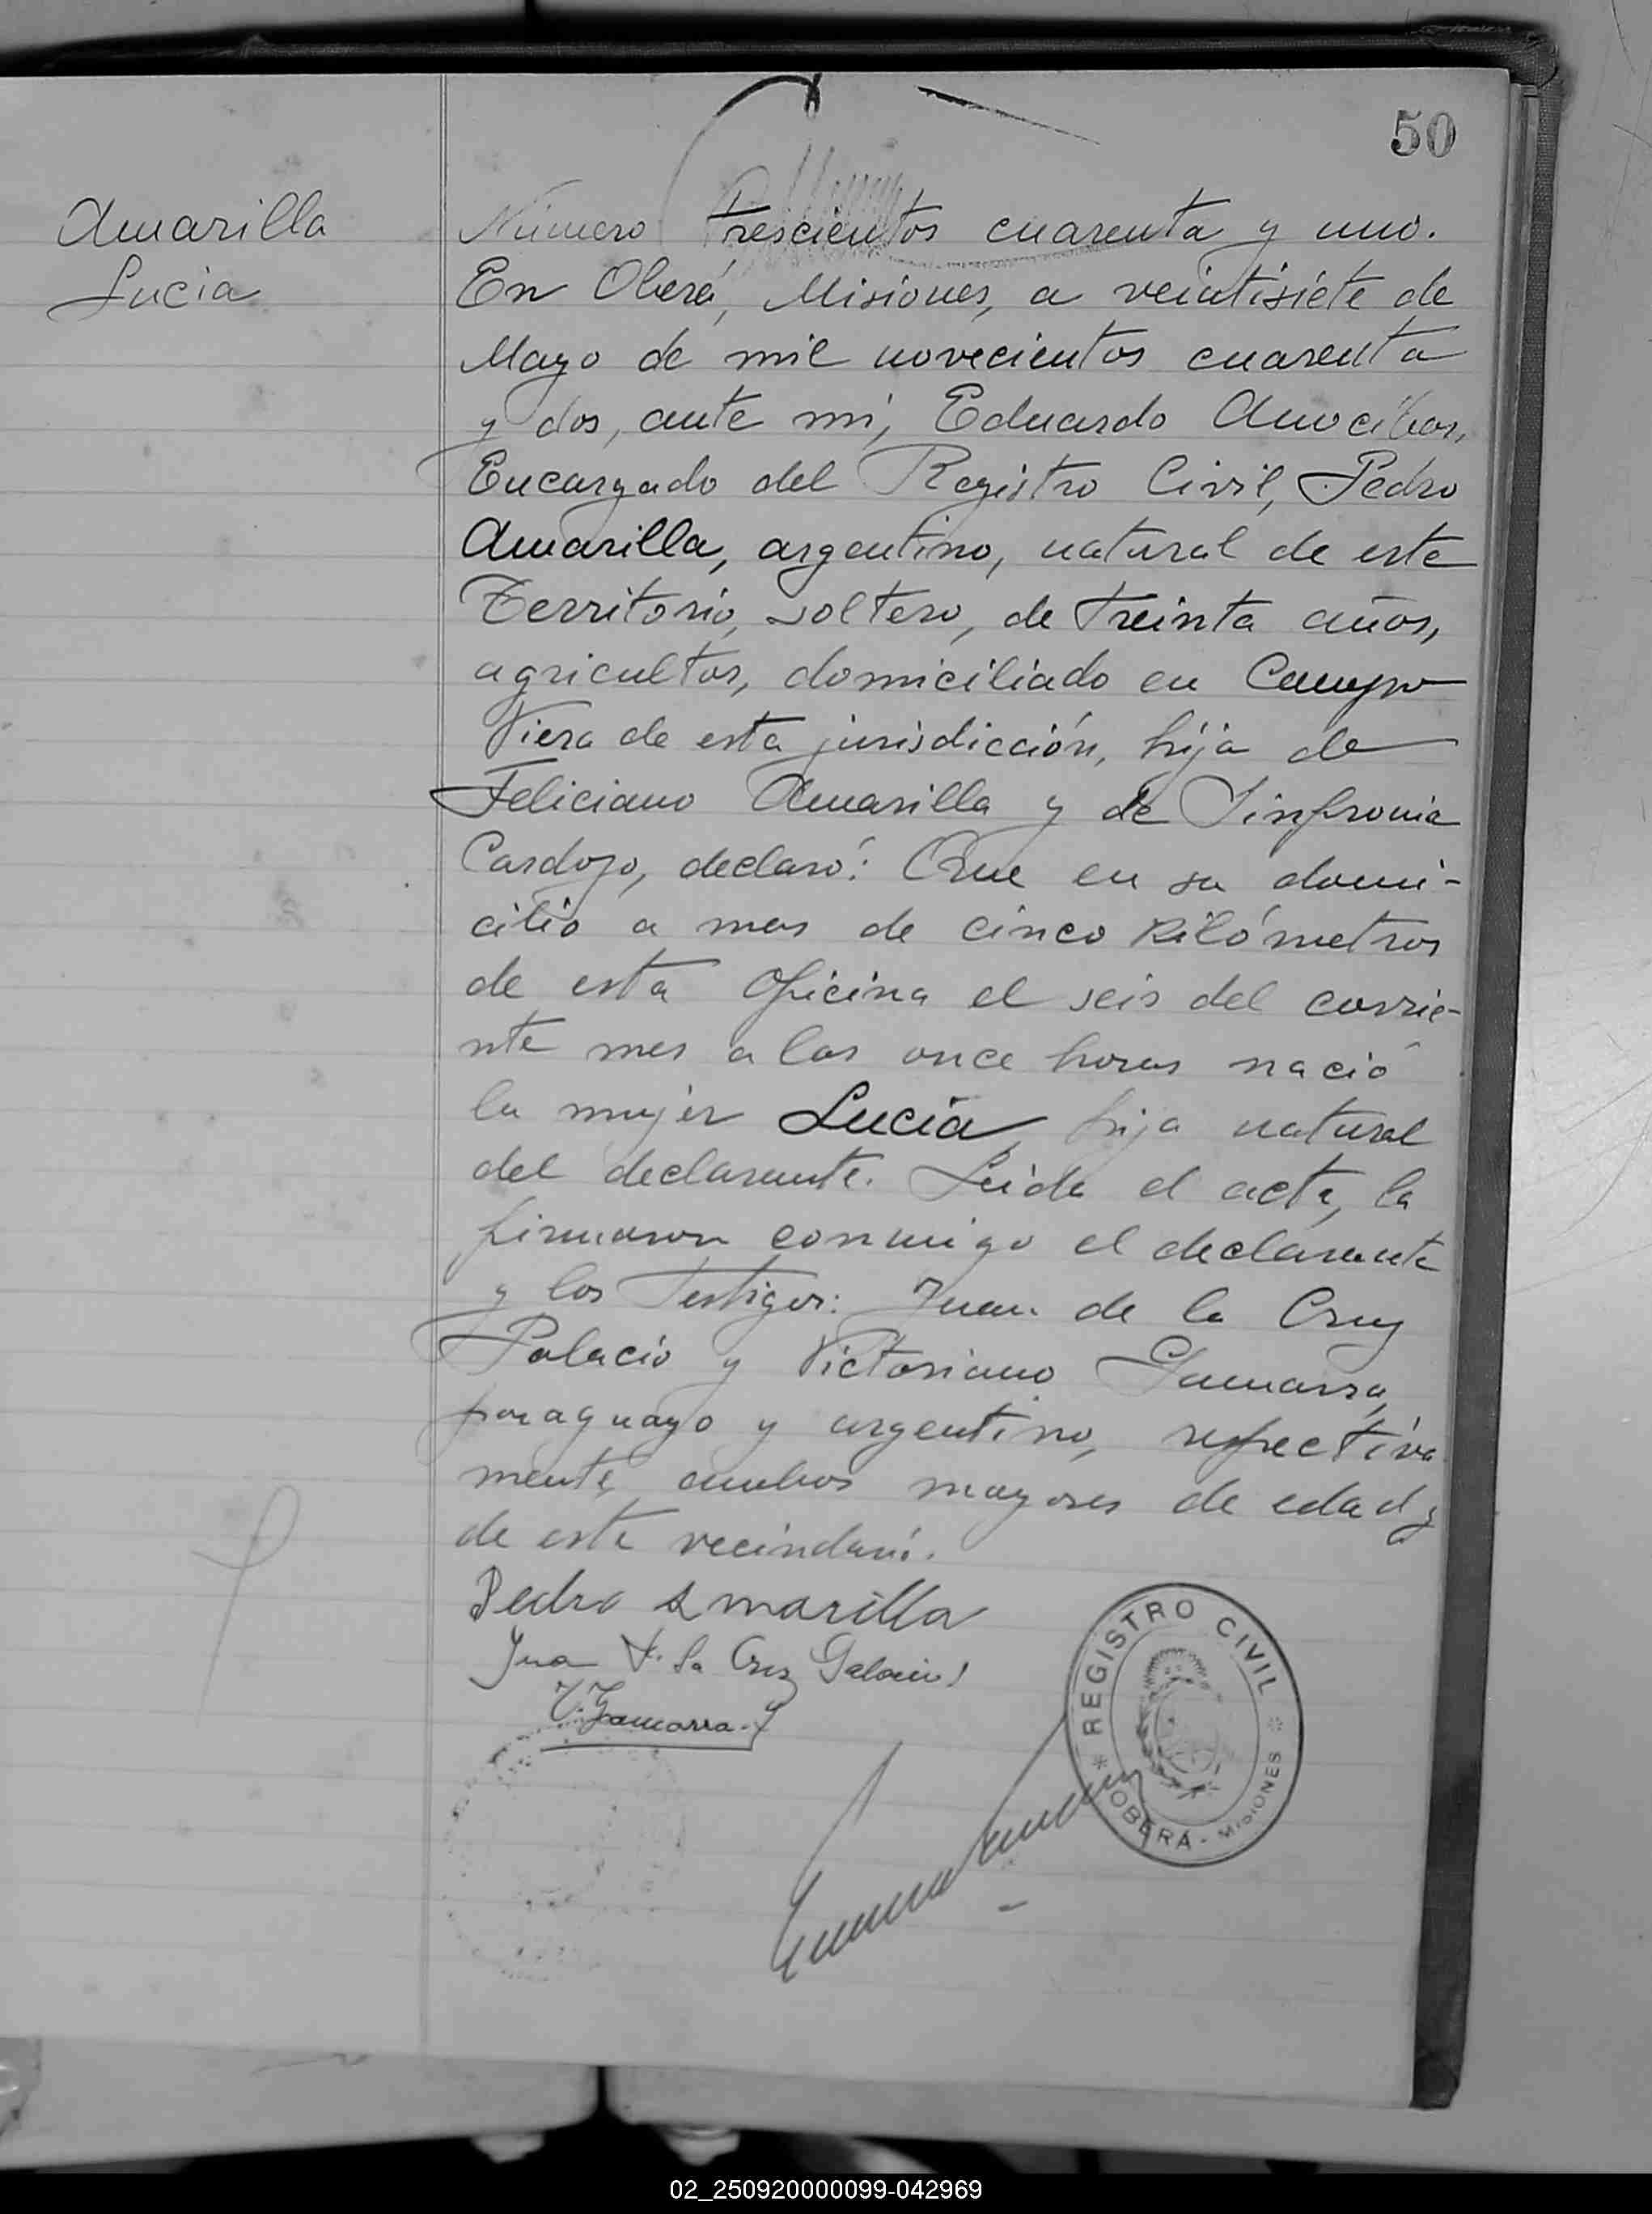 50
Amarilla
Lucia
Número trescientos cuarenta y uno.
En Oberá, Misiones, a veintisiete de
Mayo de mil novecientos cuarenta
y dos, ante mi, Eduardo
Encargado del Registro Civil, Pedro
Amarilla, argentino, natural de este
Territorio, soltero, de treinta años,
agricultor, domiciliado en Campo
Viera de esta jurisdicción, hijo de
Feliciano Amarilla y de Sinfronia
Cardozo, declaró: Que en su domi-
cilio a mas de cinco Kilómetros
de esta Oficina el seis del corrie-
nte mes a las once horas nació
la mujer Lucía, hija natural
del declarante. Leida el acta, la
firmaron conmigo el declarante
y los testigos: Juan de la Cruz
Palacio y Victoriano Gamarra,
paraguayo y argentino, respectiva
mente, ambos mayores de edad y
de este vecindario.
Pedro Amarilla
Jua d. la Cruz
V. Gamarra
REGISTRO CIVIL
OBERÁ - MISIONES
02_250920000099-042969